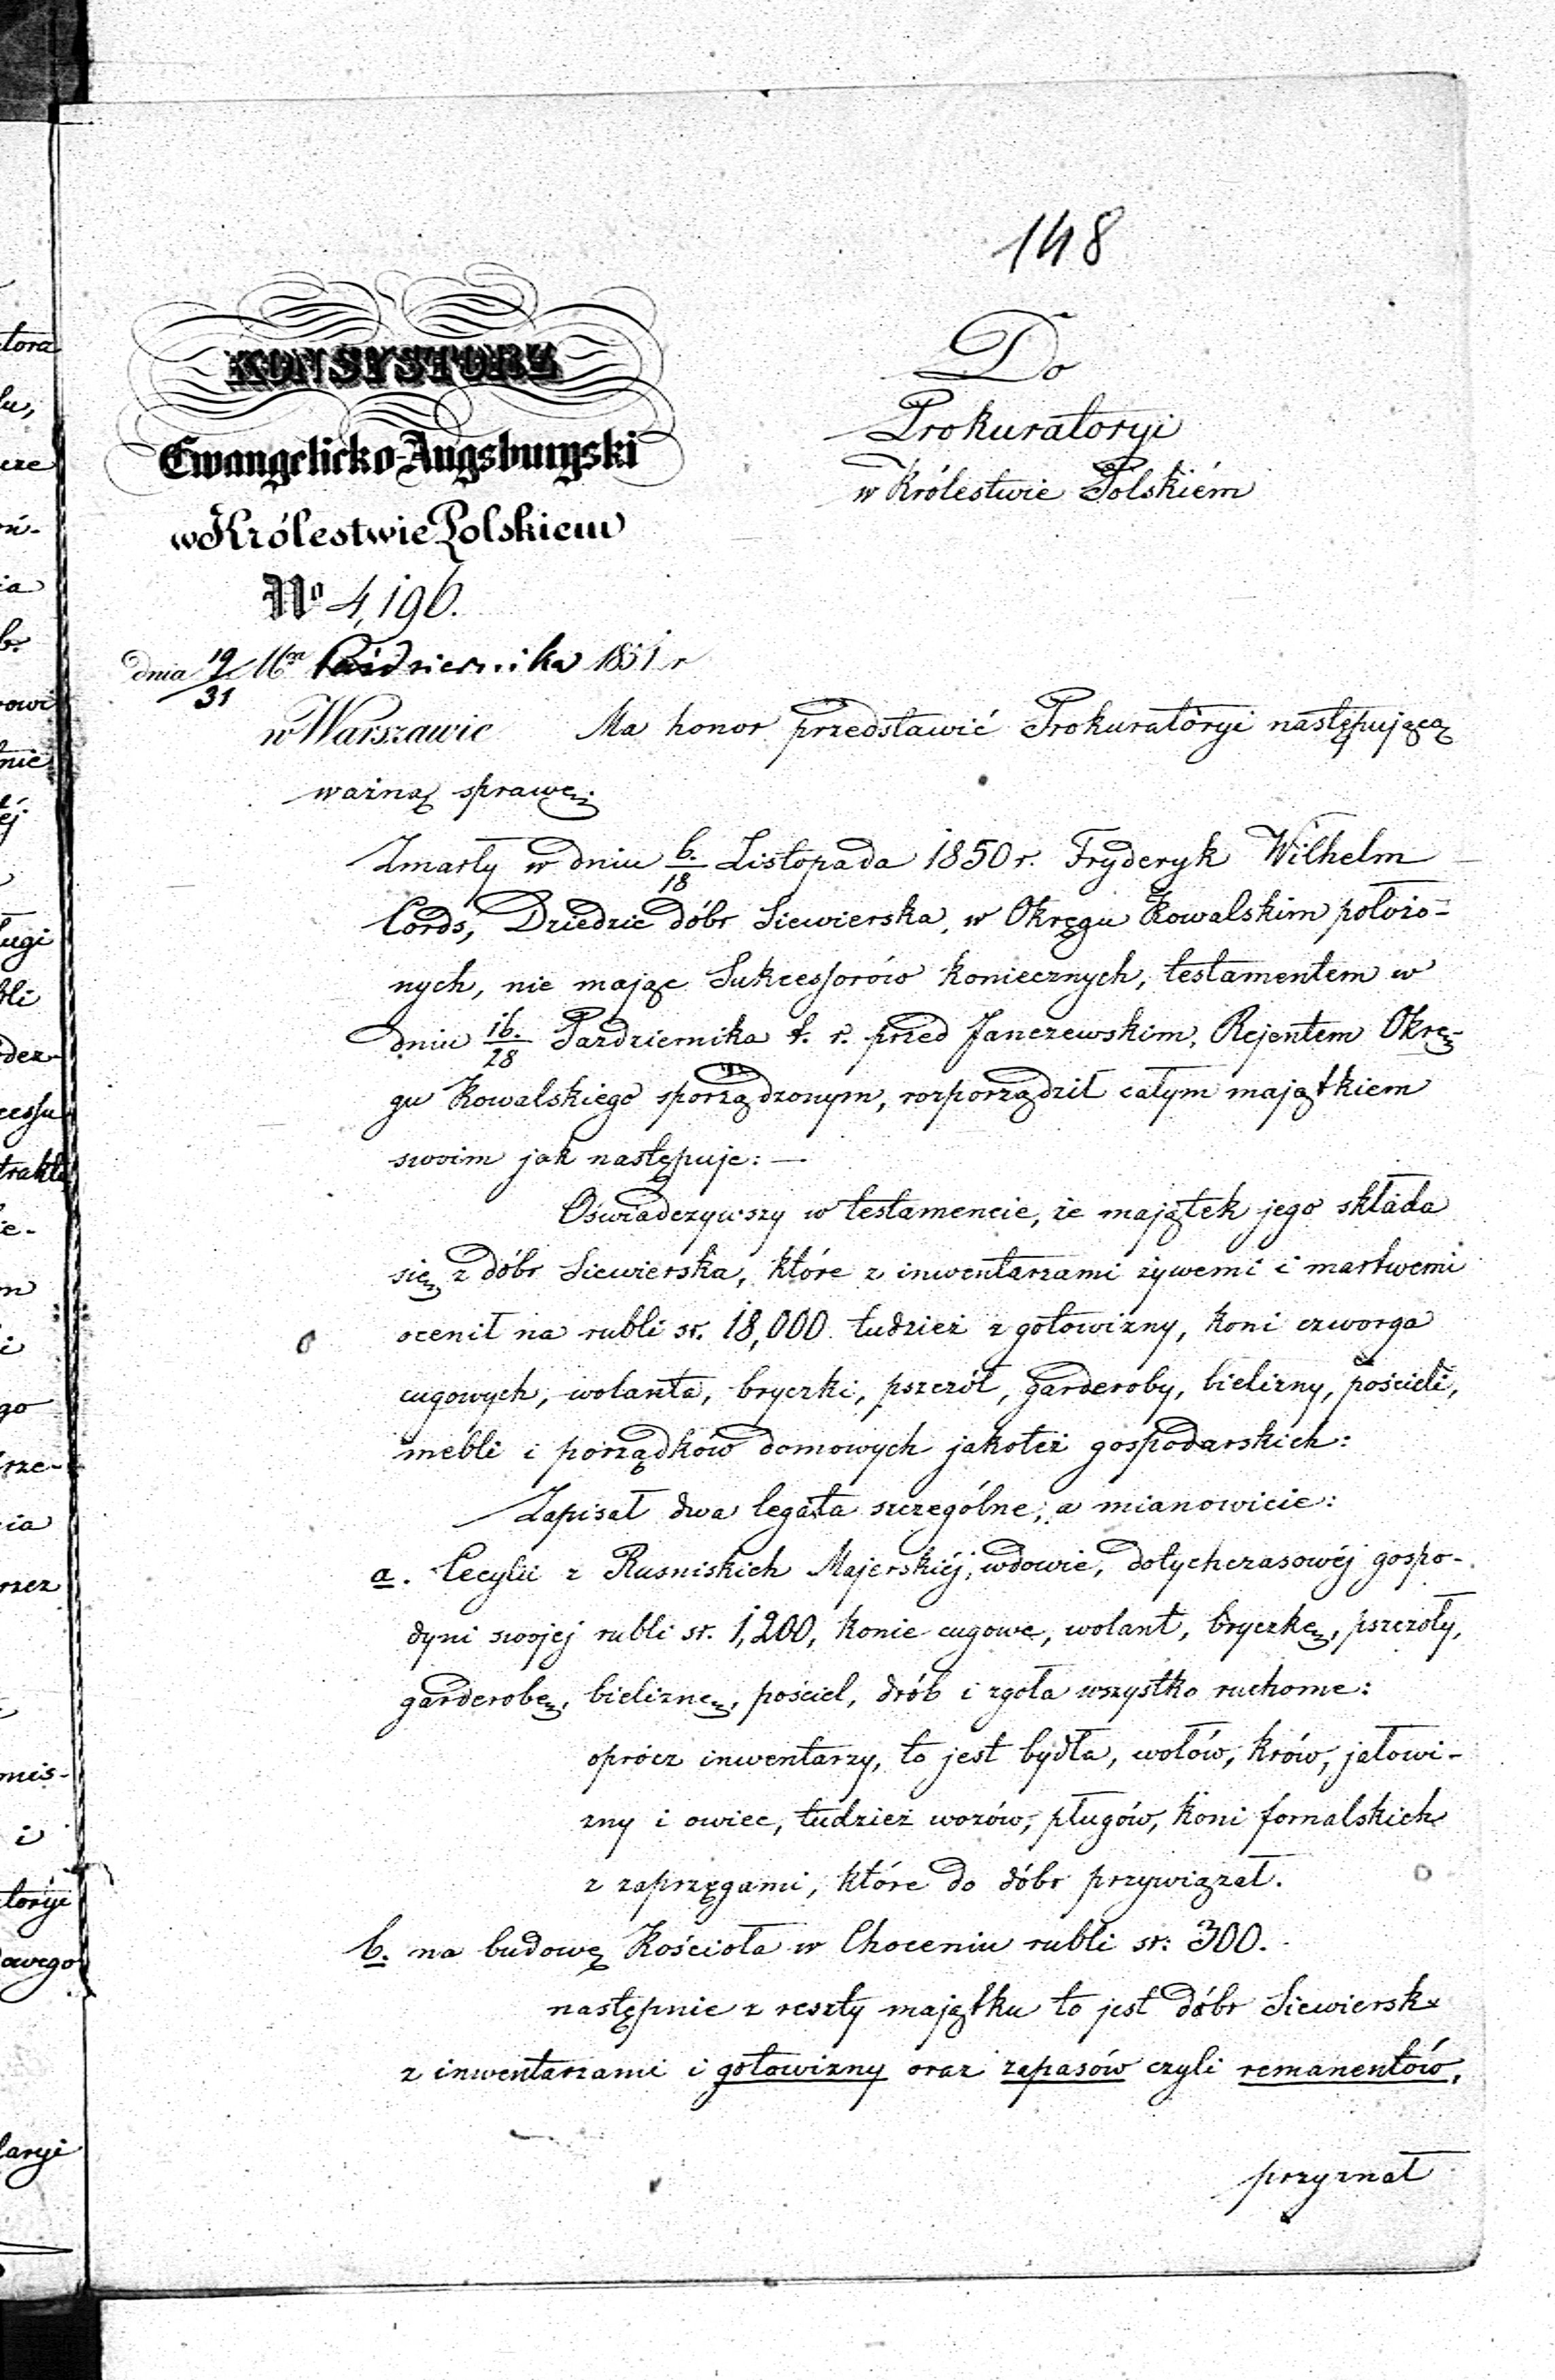 148
KONSYSTORZ
Ewangelicko-Augsburgski
w Królestwie Polskiem
No 4,196.
dnia 19/31 Października 1851 r
w Warszawie
Do
Prokuratoryi
w Królestwie Polskiém
Ma honor przedstawić Prokuratoryi następującą
ważną sprawę.
Zmarły w dniu 6./18 Listopada 1850 r. Fryderyk Wilhelm
Cords, Dziedzic dóbr Siewierska, w Okręgu Kowalskim położo-
nych, nie mając Sukcessorów koniecznych, testamentem w
dniu 16./28 Pazdziernika t. r. przed Janczewskim, Rejentem Okrę-
gu Kowalskiego sporządzonym, rozporządził całym majątkiem
swoim jak następuje: —
Oświadczywszy w testamencie, że majątek jego składa
się z dóbr Siewierska, które z inwentarzami żywemi i martwemi
ocenił na rubli sr. 18,000 tudzież z gotowizny, koni czworga
cugowych, wolanta, bryczki, pszczół, garderoby, bielizny, pościeli,
mebli i porządków domowych jakoteż gospodarskich:
Zapisał dwa legata szczególne, a mianowicie:
a. Cecylii z Rusniskich Majerskiéj, wdowie, dotychczasowéj gospo-
dyni swojej rubli sr. 1,200, konie cugowe, wolant, bryczkę, pszczoły,
garderobę, bieliznę, pościel, drób i zgoła wszystko ruchome:
oprócz inwentarzy, to jest bydła, wołów, krów, jałowi-
zny i owiec, tudzież wozów, pługów, koni fornalskich
z zaprzęgami, które do dóbr przywiązał.
b. na budowę Kościoła w Choceniu rubli sr: 300.
następnie z reszty majątku to jest dóbr Siewierska
z inwentarzami i gotowizny oraz zapasów czyli remanentów,
przyznał